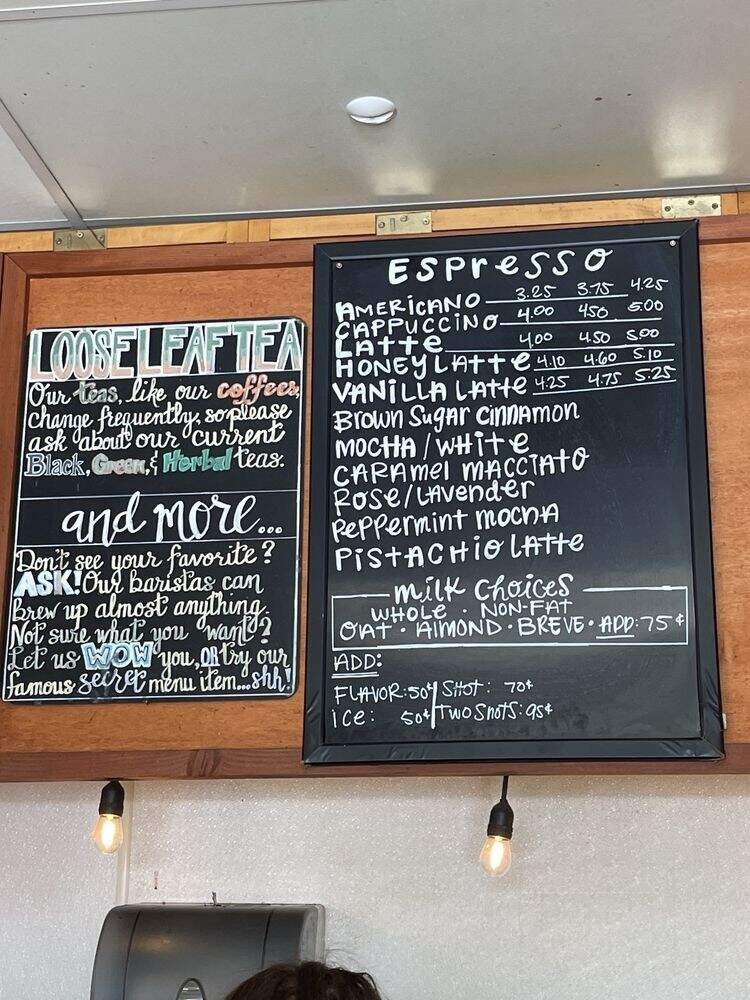 LOOSE LEAF TEA
Our teas, like our coffees,
change frequently, so please
ask about our current
Black, Green, & Herbal teas.
and more...
Don't see your favorite?
ASK! Our baristas can
brew up almost anything.
Not sure what you want?
Let us WOW you, OR try our
famous secret menu item...shh!
Espresso
AMERICANO 3.25 3.75 4.25
CAPPUCCINO 4.00 4.50 5.00
Latte 4.00 4.50 5.00
HONEY LATTE 4.10 4.60 5.10
VANILLA LATTE 4.25 4.75 5.25
Brown Sugar Cinnamon
MOCHA / WHITE
CARAMEL MACCIATO
ROSE / LAVENDER
PEPPERMINT MOCHA
PISTACHIO LATTE
milk choices
WHOLE · NON-FAT
OAT · ALMOND · BREVE · ADD: 75¢
ADD:
FLAVOR: 50¢ SHOT: 70¢
ICE: 50¢ TWO SHOTS: 95¢